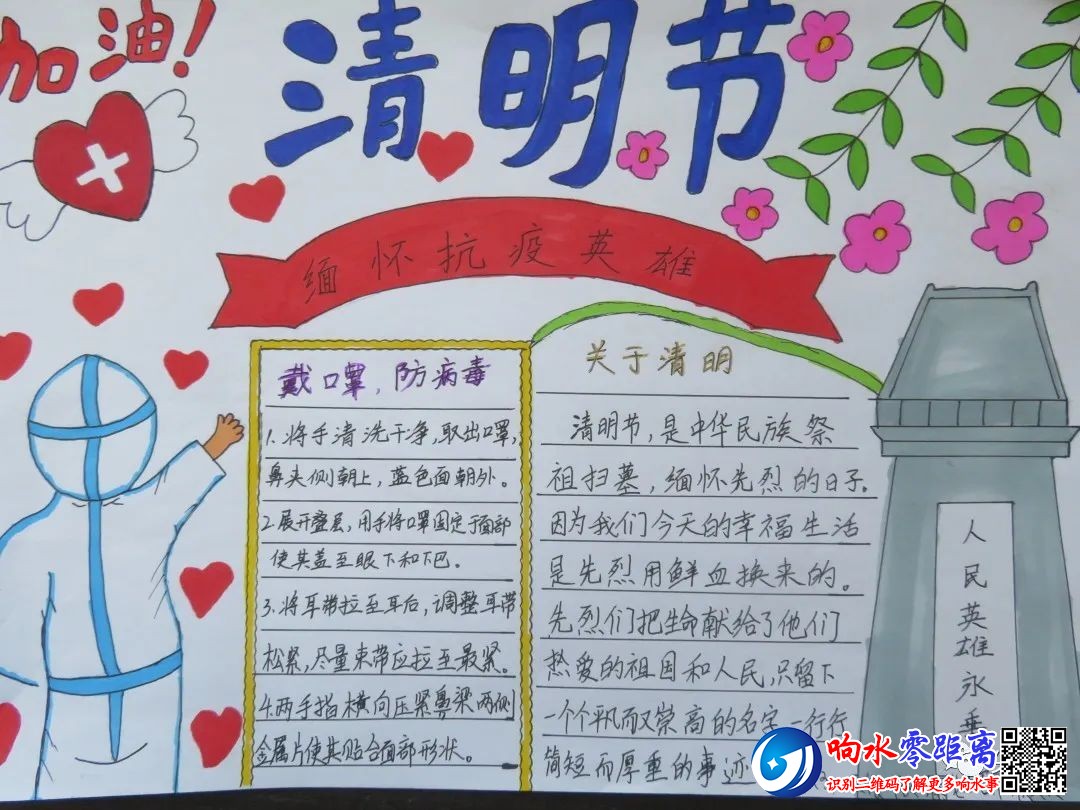 加油！
清明节
缅怀抗疫英雄
戴口罩，防病毒
1.将手清洗干净，取出口罩，
鼻夹侧朝上，蓝色面朝外。
2.展开叠层，用手将口罩固定于面部
使其盖至眼下和下巴。
3.将耳带拉至耳后，调整耳带
松紧，尽量束带应拉至最紧。
4.两手指横向压紧鼻梁两侧
金属片使其贴合面部形状。
关于清明
清明节，是中华民族祭
祖扫墓，缅怀先烈的日子。
因为我们今天的幸福生活
是先烈用鲜血换来的。
先烈们把生命献给了他们
热爱的祖国和人民，只留下
一个个平凡而又崇高的名字一行行
简短而厚重的事迹
人民英雄永垂
响水零距离
识别二维码了解更多响水事